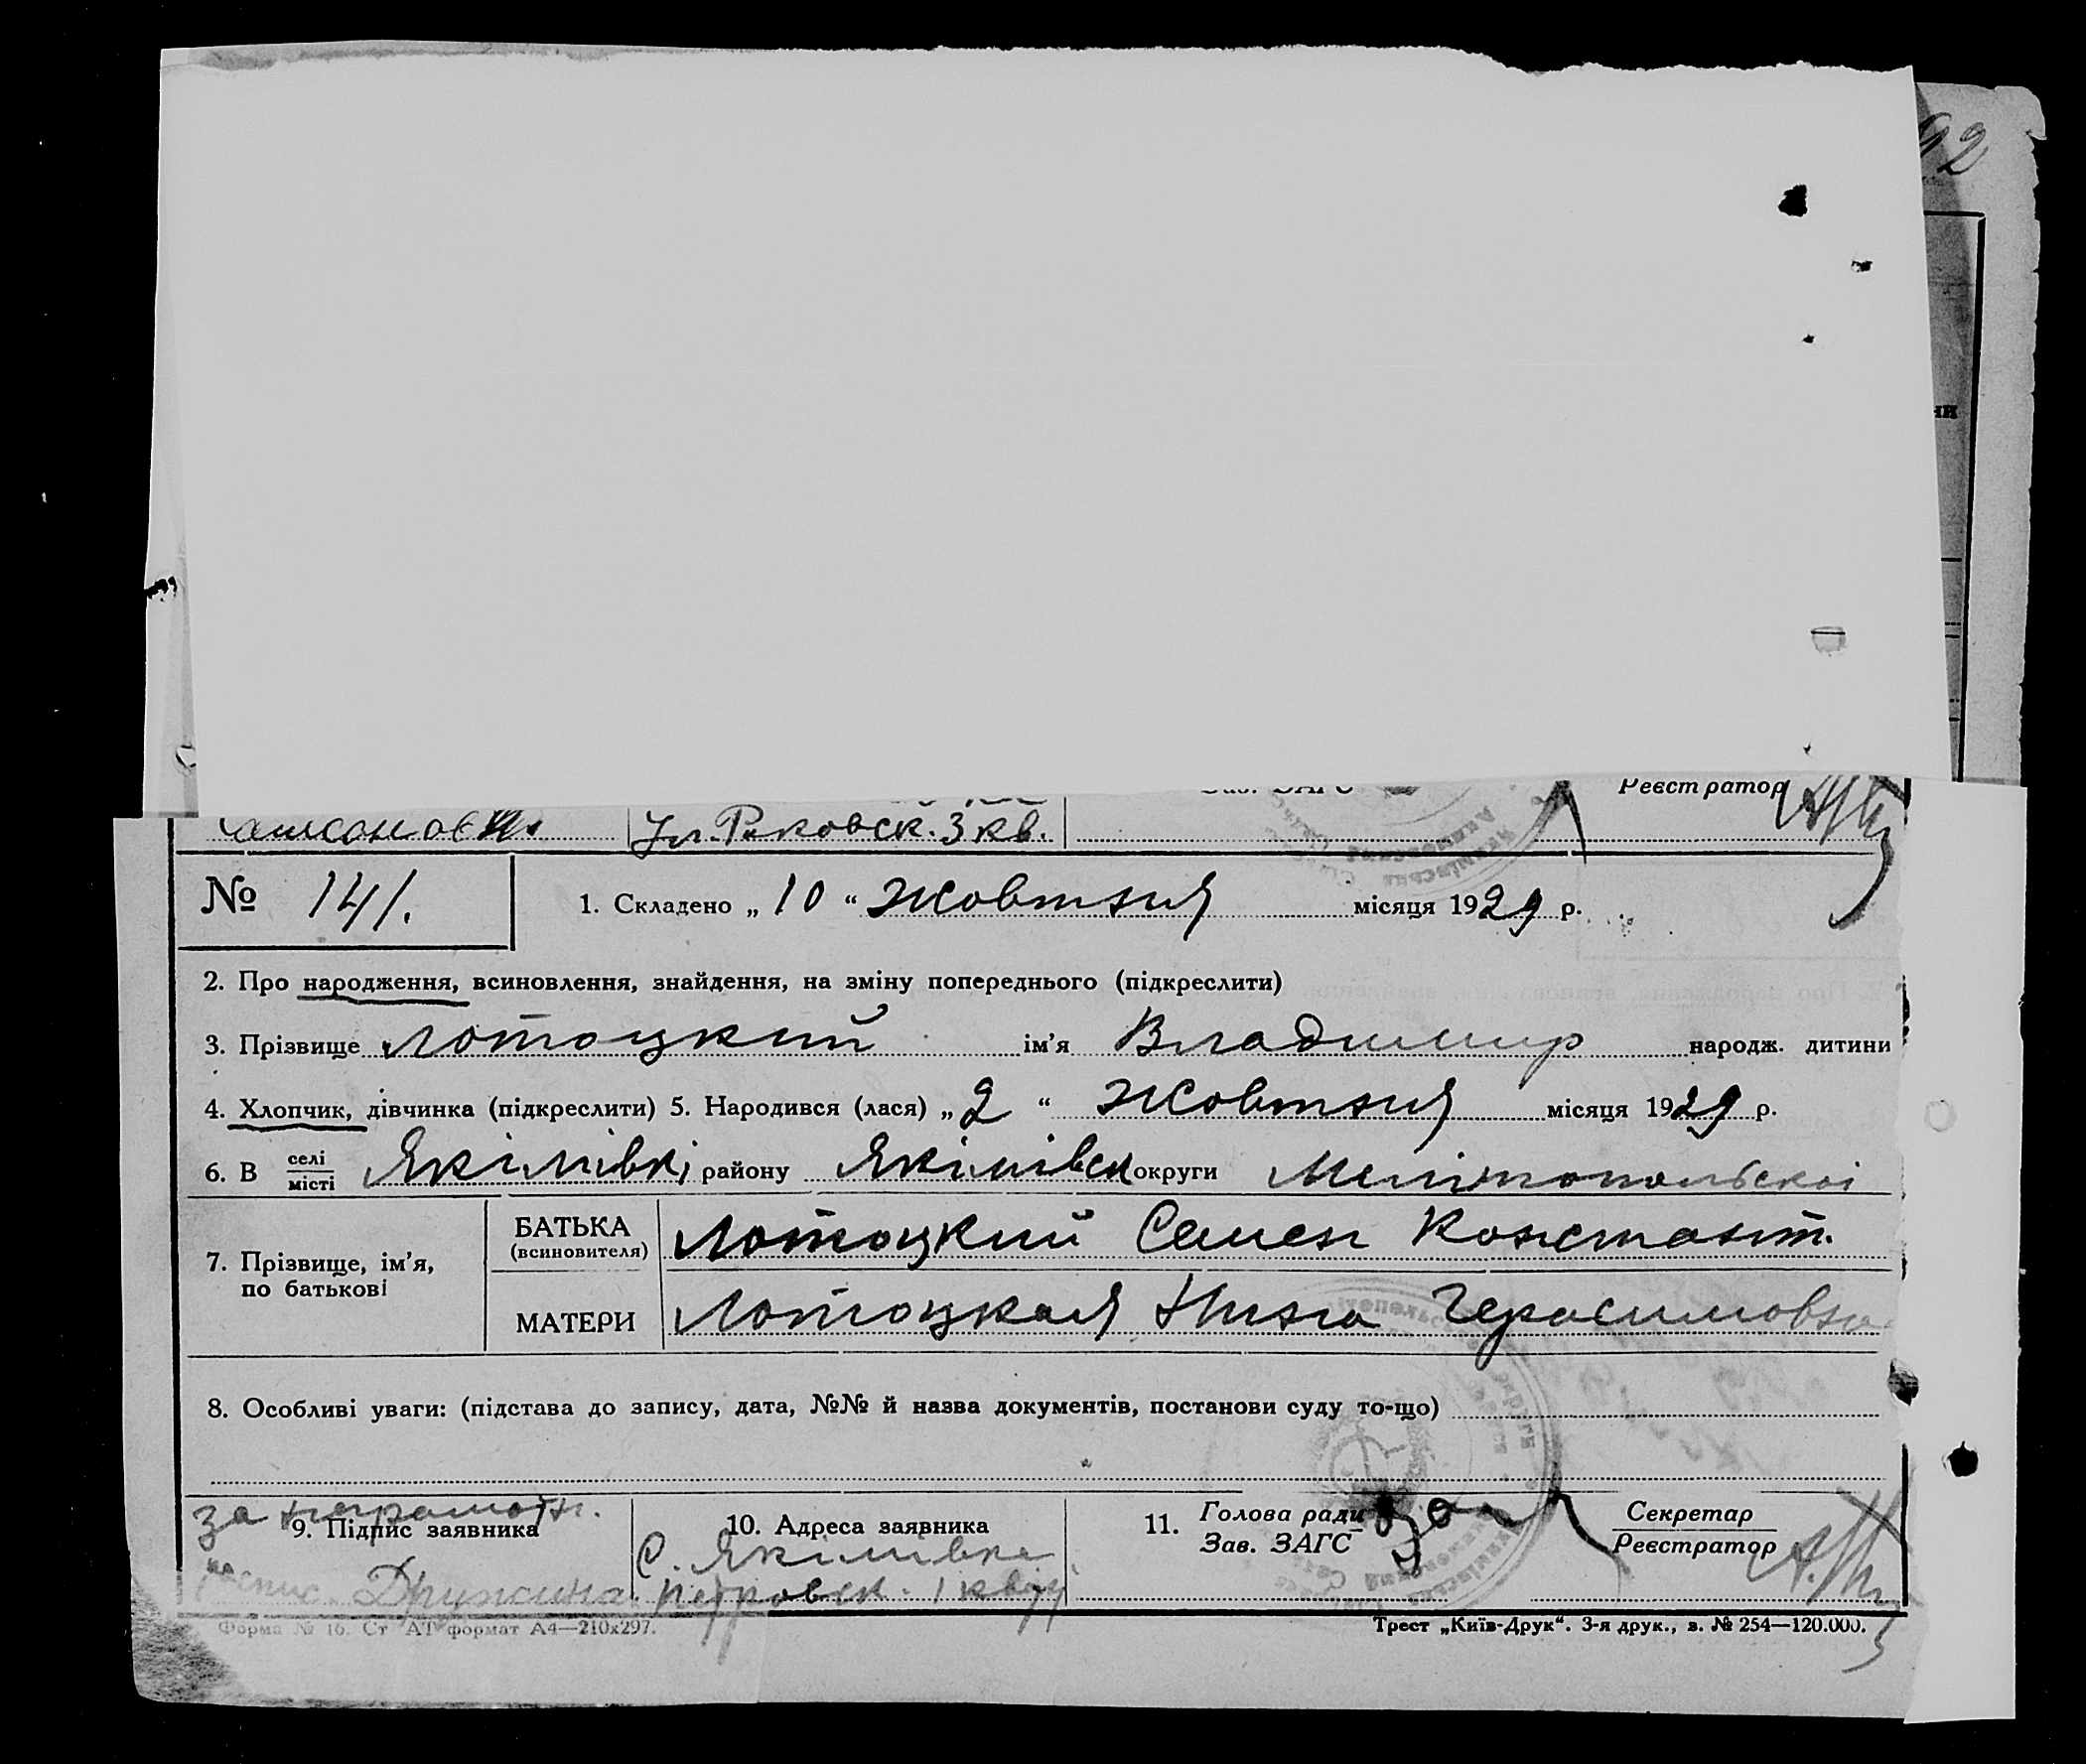 92
ни
Реєстратор
Самсонов Ул. Раковск. 3 кв.
№ 141. 1. Складено „ 10 “ Жовтня місяця 1929 р.
2. Про народження, всиновлення, знайдення, на зміну попереднього (підкреслити)
3. Прізвище Лотоцкий ім’я Владимир народж. дитини
4. Хлопчик, дівчинка (підкреслити) 5. Народився (лася) „ 2 “ Жовтня місяця 1929 р.
6. В селі місті Якімівкі району Якімівск округи Мелітопольскоі
7. Прізвище, ім’я, по батькові
БАТЬКА (всиновителя) Лотоцкий Семен Констант.
МАТЕРИ Лотоцкая Нина Герасимовна
8. Особливі уваги: (підстава до запису, дата, №№ й назва документів, постанови суду то-що)
за неграмотн.
9. Підпис заявника 10. Адреса заявника 11. Голова ради Секретар
Зав. ЗАГС Реєстратор
роспис. Дружина. С. Якімівка
Петровск. 1 кварт
Форма № 16. Ст АТ формат А4—210x297. Трест „Київ-Друк“. 3-я друк., з. № 254—120.000.